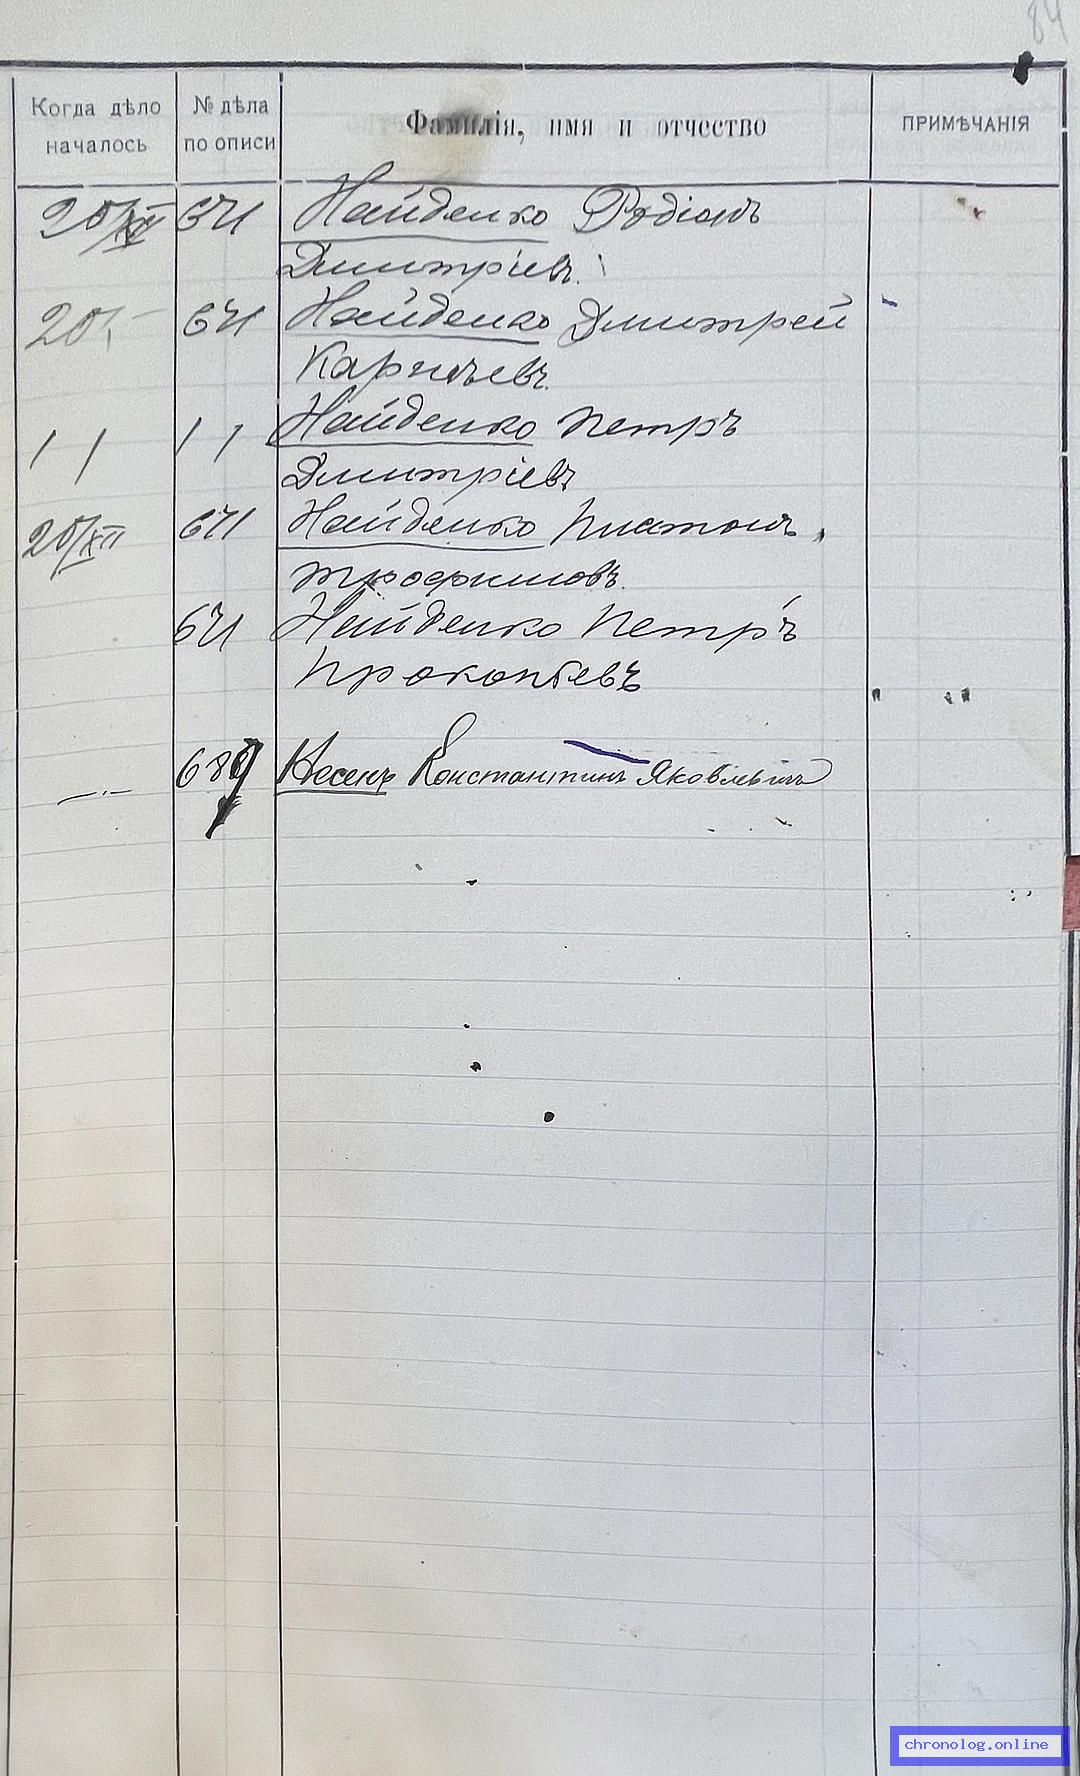 84
Когда дѣло началось
№ дѣла по описи
Фамилія, имя и отчество
ПРИМѢЧАНІЯ
20/XII 641 Найденко Родіонъ
Дмитріевъ.
20 641 Найденко Дмитрей
Карпѣевъ.
11 11 Найденко Петръ
Дмитріевъ
20/XII 641 Найденко Платонъ
Трофимовъ.
641 Найденко Петръ
Прокопіевъ
689 Несенъ Константинъ Яковлевичъ
chronolog.online